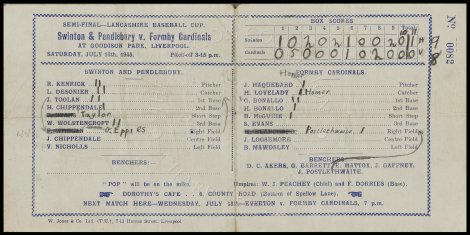 SEMI-FINAL—LANCASHIRE BASEBALL CUP.
Swinton & Pendlebury v. Formby Cardinals
AT GOODISON PARK, LIVERPOOL.
SATURDAY, JULY 10th, 1948. Pitch-off 3-15 p.m.
BOX SCORES
Swinton
Cardinals
No 0082
SWINTON AND PENDLEBURY.
R. KENRICK Pitcher
L. DESONIER Catcher
J. TOOLAN 1st Base
H. CHIPPENDALE 2nd Base
Taylor Short Stop
W. WOLSTENCROFT 3rd Base
Right Field
J. CHIPPENDALE Centre Field
V. NICHOLLS Left Field
BENCHERS:
FORMBY CARDINALS.
J. MAQUEBARD Pitcher
M. LOVELADY Homer Catcher
G. BONALLO 1st Base
H. BONALLO 2nd Base
B. McGUIRE Short Stop
S. EVANS 3rd Base
Postlethwaite Right Field
J. LOOSEMORE Centre Field
B. MAWDSLEY Left Field
BENCHERS:
D. C. AKERS, G. BARRETT, E. MATTOX, J. GAFFNEY,
J. POSTLETHWAITE.
"POP" will be on the mike. Umpires: W. J. PEACHEY (Chief) and F. DORRIES (Base).
DOROTHY'S CAFE, 6, COUNTY ROAD (Bottom of Spellow Lane).
NEXT MATCH HERE—WEDNESDAY, JULY EVERTON v. FORMBY CARDINALS, 7 p.m.
W. Jones & Co. Ltd. (T.U.), Street, Liverpool